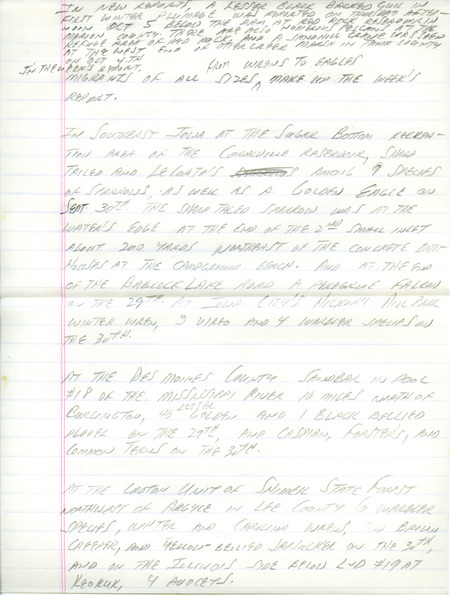 IN NEW REPORTS, A LESSER BLACK BACKED GULL IN
FIRST WINTER PLUMAGE WAS REPORTED ON THURSDAY AFTER-
NOON OCT 5 BELOW THE DAM AT RED ROCK RESERVOIR IN
MARION COUNTY. THERE ARE ALSO NUMEROUS PELICANS IN THE
REFUGE AREA OF RED ROCK, AND A SANDHILL CRANE WAS SEEN
AT THE WEST END OF OTTER CREEK MARSH IN TAMA COUNTY
ON OCT 4TH
IN THE WEEK'S REPORT, FROM WRENS TO EAGLES
MIGRANTS OF ALL SIZES, MAKE UP THE WEEK'S
REPORT.
IN SOUTHEAST IOWA AT THE SUGAR BOTTOM RECREA-
TION AREA OF THE CORALVILLE RESERVOIR, SHARP
TAILED AND LECONTE'S AMONG 9 SPECIES
OF SPARROWS, AS WELL AS A GOLDEN EAGLE ON
SEPT 30TH. THE SHARP TAILED SPARROW WAS AT THE
WATER'S EDGE AT THE END OF THE 2ND SMALL INLET
ABOUT 200 YARDS NORTHEAST OF THE CONCRETE OUT-
HOUSES AT THE CAMPGROUND BEACH. AND AT THE END
OF THE BABCOCK LAKE ROAD A PEREGRINE FALCON
ON THE 29TH. AT IOWA CITY'S HICKORY HILL PARK
WINTER WREN, 3 VIREO AND 4 WARBLER SPECIES ON
THE 30TH.
AT THE DES MOINES COUNTY SANDBAR IN POOL
#18 OF THE MISSISSIPPI RIVER 10 MILES NORTH OF
BURLINGTON, 45 LESSER GOLDEN AND 1 BLACK BELLIED
PLOVER ON THE 29TH, AND CASPIAN, FORSTER'S, AND
COMMON TERNS ON THE 30TH.
AT THE CROTON UNIT OF SHIMEK STATE FOREST
NORTHWEST OF ARGYLE IN LEE COUNTY 6 WARBLER
SPECIES, WINTER AND CAROLINA WRENS, BROWN
CREEPER, AND YELLOW-BELLIED SAPSUCKER ON THE 30TH,
AND ON THE ILLINOIS SIDE BELOW L+D #19 AT
KEOKUK, 4 AVOCETS.